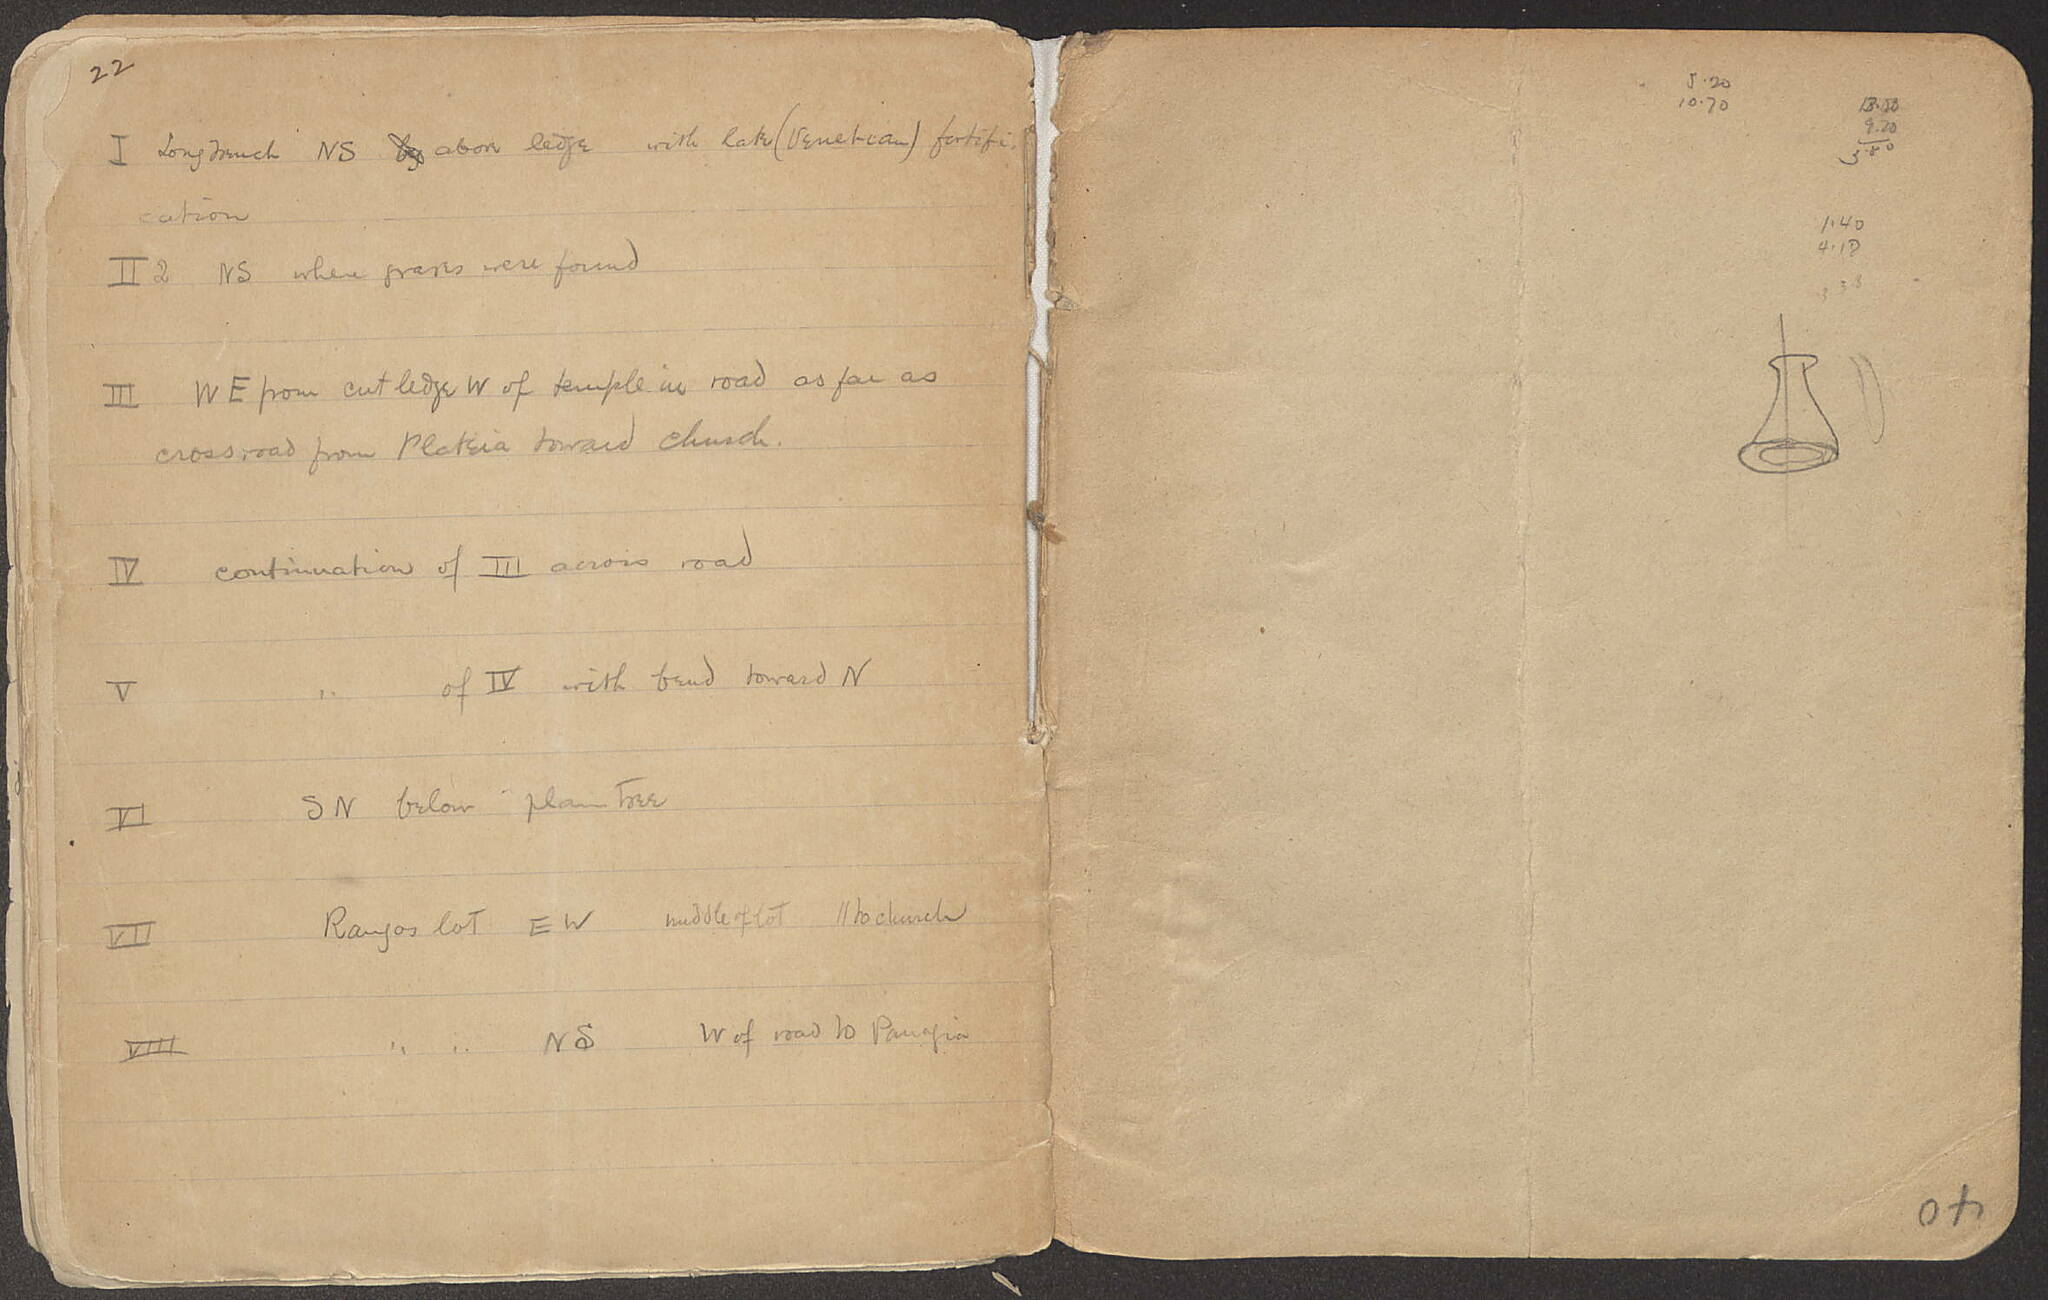 22
I Long trench NS above ledge with late (Venetian) fortifi-
cation
II 2 NS where graves were found
III W E from cut ledge W of temple in road as far as
crossroad from Plateia toward church.
IV continuation of III across road
V " of IV with bend toward N
VI S N below plane tree
VII Rangos lot E W middle of lot // to church
VIII " " NS W of road to Panagia
5.20
10.70
9.20
3.80
1.40
4.18
3 38
40